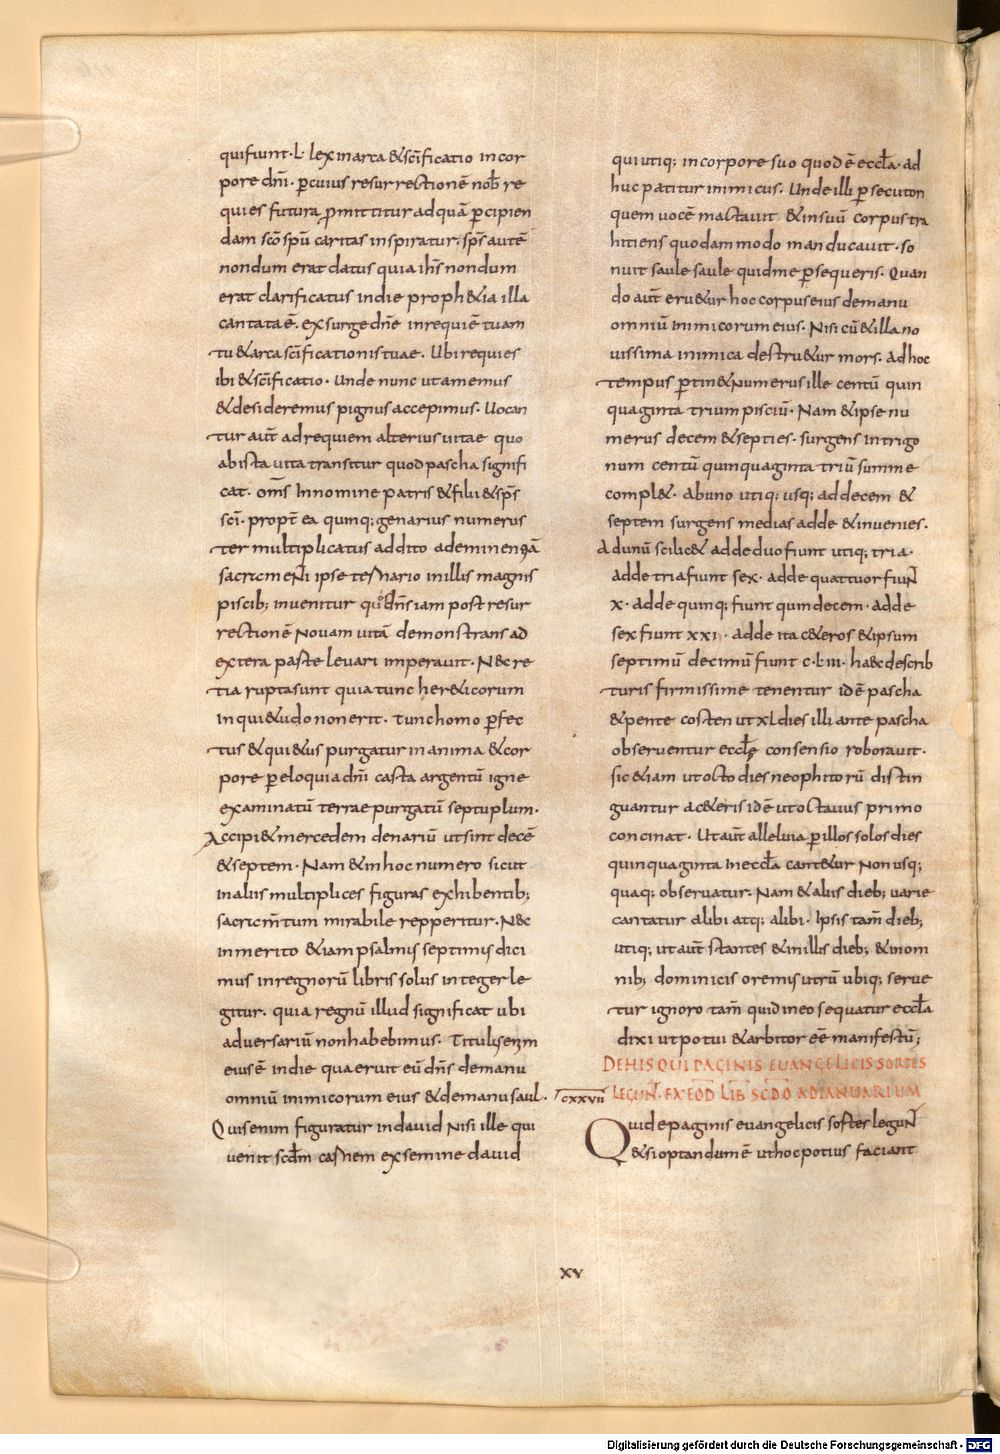 qui fiunt · L · lex in arca & scīficatio in cor
pore dn̄i · ꝑ cuius resurrectionē nob̄ re
quies futura ꝓmittitur ad quā ꝑcipien
dam scō sp̄u caritas inspiratur · sp̄s autē
nondum erat datus quia ih̄s nondum
erat clarificatus inde proph&ia illa
cantata ē · exsurge dn̄e in requiē tuam
tu & arca scīficationis tuae · Ubi requies
ibi & scīficatio · Unde nunc ut amemus
& desideremus pignus accepimus · Uocan
tur aut̄ ad requiem alterius uitae quo
ab ista uita transitur quod pascha signifi
cat · om̄s In nomine patris & filii & sp̄s
scī · propt̄ ea quinq; genarius numerus
ter multiplicatus addito ad eminentiā
sacramenti ipse ternario in illis magnis
piscib; inuenitur quos dn̄s iam post resur
rectionē Nouam uitā demonstrans a d
extera parte leuari imperauit · Nec re
tia rupta sunt quia tunc her&icorum
inqui&udo non erit · Tunc homo ꝑfec
tus & qui&us purgatur in anima & cor
pore ꝑ eloquia dn̄i casta argentū igne
examinatū terrae purgatū septuplum ·
Accipi& mercedem denariū ut sint decē
& septem · Nam & in hoc numero sicut
in aliis multiplices figuras exhibentib;
sacrm̄tum mirabile repperitur · Nec
inmerito &iam psalmis septimis dici
mus in regnorū libris solus integer le
gitur · quia regnū illud significat ubi
aduersariū non habebimus · Titulis enim
eius ē in die qua eruit eū dn̄s de manu
omniū inimicorum eius & de manu saul ·
Quis enim figuratur in dauid Nisi ille qui
uenit scd̄m carnem ex semine dauid
qui utiq; in corpore suo quod ē eccl̄a · ad
huc patitur inimicus · Unde illi ꝑsecutori
quem uocē mactauit & in suū corpus tra
hitiens quodam modo manducauit · so
nuit saule saule quid me ꝑsequeris · Quan
do aut̄ eru&ur hoc corpus eius de manu
omniū inimicorum eius · Nisi cū & illa no
uissima inimica destru&ur mors · Ad hoc
tempus ꝑtin& Numerus ille centū quin
quaginta trium pisciū · Nam & ipse nu
merus decem & septies · surgens in trigo
num centū quinquaginta triū summe
compl& · ab uno utiq; usq; ad decem &
septem surgens medias adde & inuenies ·
Ad unū scilic& adde duo fiunt utiq; tria ·
adde tria fiunt sex · adde quattuor fiunt
x · adde quinq; fiunt quindecem · adde
sex fiunt xxi · adde ita c&eros & ipsum
septimū decimū fiunt c · Liii · haec describ
turis firmissime tenentur id ē pascha
& pente costen ut xl dies illi ante pascha
obseruentur eccl̄ę consensio roborauit ·
sic &iam ut octo dies neophitorū distin
guantur a c&eris id ē ut octauus primo
concinat · Ut aut̄ alleluia ꝑ illos solos dies
quinquaginta in eccl̄a cant&ur Non usq;
quaq; obseruatur · Nam & aliis dieb; uarie
cantatur alibi atq; alibi · Ipsis tam̄ dieb;
utiq; ut aut̄ stantes & in illis dieb; & in om
nib; dominicis oremis utrū ubiq; serue
tur ignoro tam̄ quid in eo sequatur eccl̄a
dixi ut potui & arbitor ee̅ manifestū;
DE HIS QUI PAGINIS EUANGELICIS SORTES
CXXVII LEGUNT · EX EOD̄ LIB̄ SCD̄O AD IANUARIUM
Qui de paginis euangelicis sortes legunt
& si optandum ē ut hoc potius faciant
XV
Digitalisierung gefördert durch die Deutsche Forschungsgemeinschaft - DFG